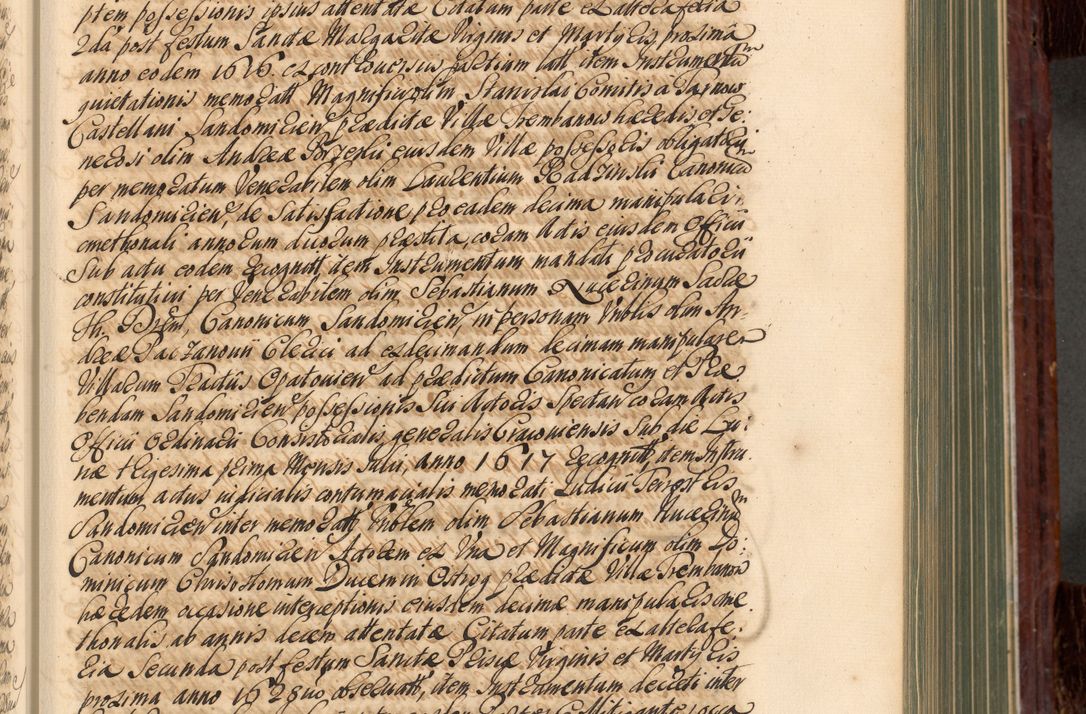 ptem possessionis ipsius attentatæ Citatum parte ex altera feria
2da post festum Sanctæ Margaritæ Virginis et Martyris proxima
anno eodem 1616. ex controversiis partium latt item Instrumentum
quietationis memoratt Magnificorum Stanislai Comitis a Tarnow
Castellani Sandomirien prædictæ Villæ Trembanow hæredis et Ge:
nerosi olim Andreæ ejusdem Villæ possessoris obligatorium
per memoratum Venerabilem olim Laurentium Radzinski Canonicum
Sandomirien, de Satisfactione pro eadem decima manipulari
cmethonali annorum duorum præstita, coram Actis ejusdem Officii
Sub actu eodem recognitt, item Instrumentum mandati procuratorii
constitutivi per Venerabilem olim Sebastianum Nucerinum Sacræ
Th. Drem, Canonicum Sandomirien, in personam Nobilis olim An:
dreæ Paczanowii Clerici ad exdecimandum decimam manipularem
Villarum Tractus Opatovien ad prædictum Canonicatum et Præ:
bendam Sandomirien possessionis Sui Actoris Spectan coram Actis
Officii Ordinarii Consistorialis generalis Cracoviensis Sub die Lu:
næ trigesima prima Mensis Julii anno 1617 recognitt, item Instru:
mentum actus judicialis contumacialis memorati Judicii Terrestris
Sandomirien inter memoratt Nobilem olim Sebastianum Nucerinum
Canonicum Sandomirien Actorem ex Una et Magnificum olim Do:
minicum Chrisostomum Ducem in Ostrog prædictæ Villæ Trembanow
hæredem occasione interceptionis ejusdem decimæ manipularis cme
thonalis ab annis decem attentatæ Citatum parte ex altera fe:
ria Secunda post festum Sanctæ Priscæ Virginis et Martyris
proxima anno 1628vo observatt, item Instrumentum decreti inter